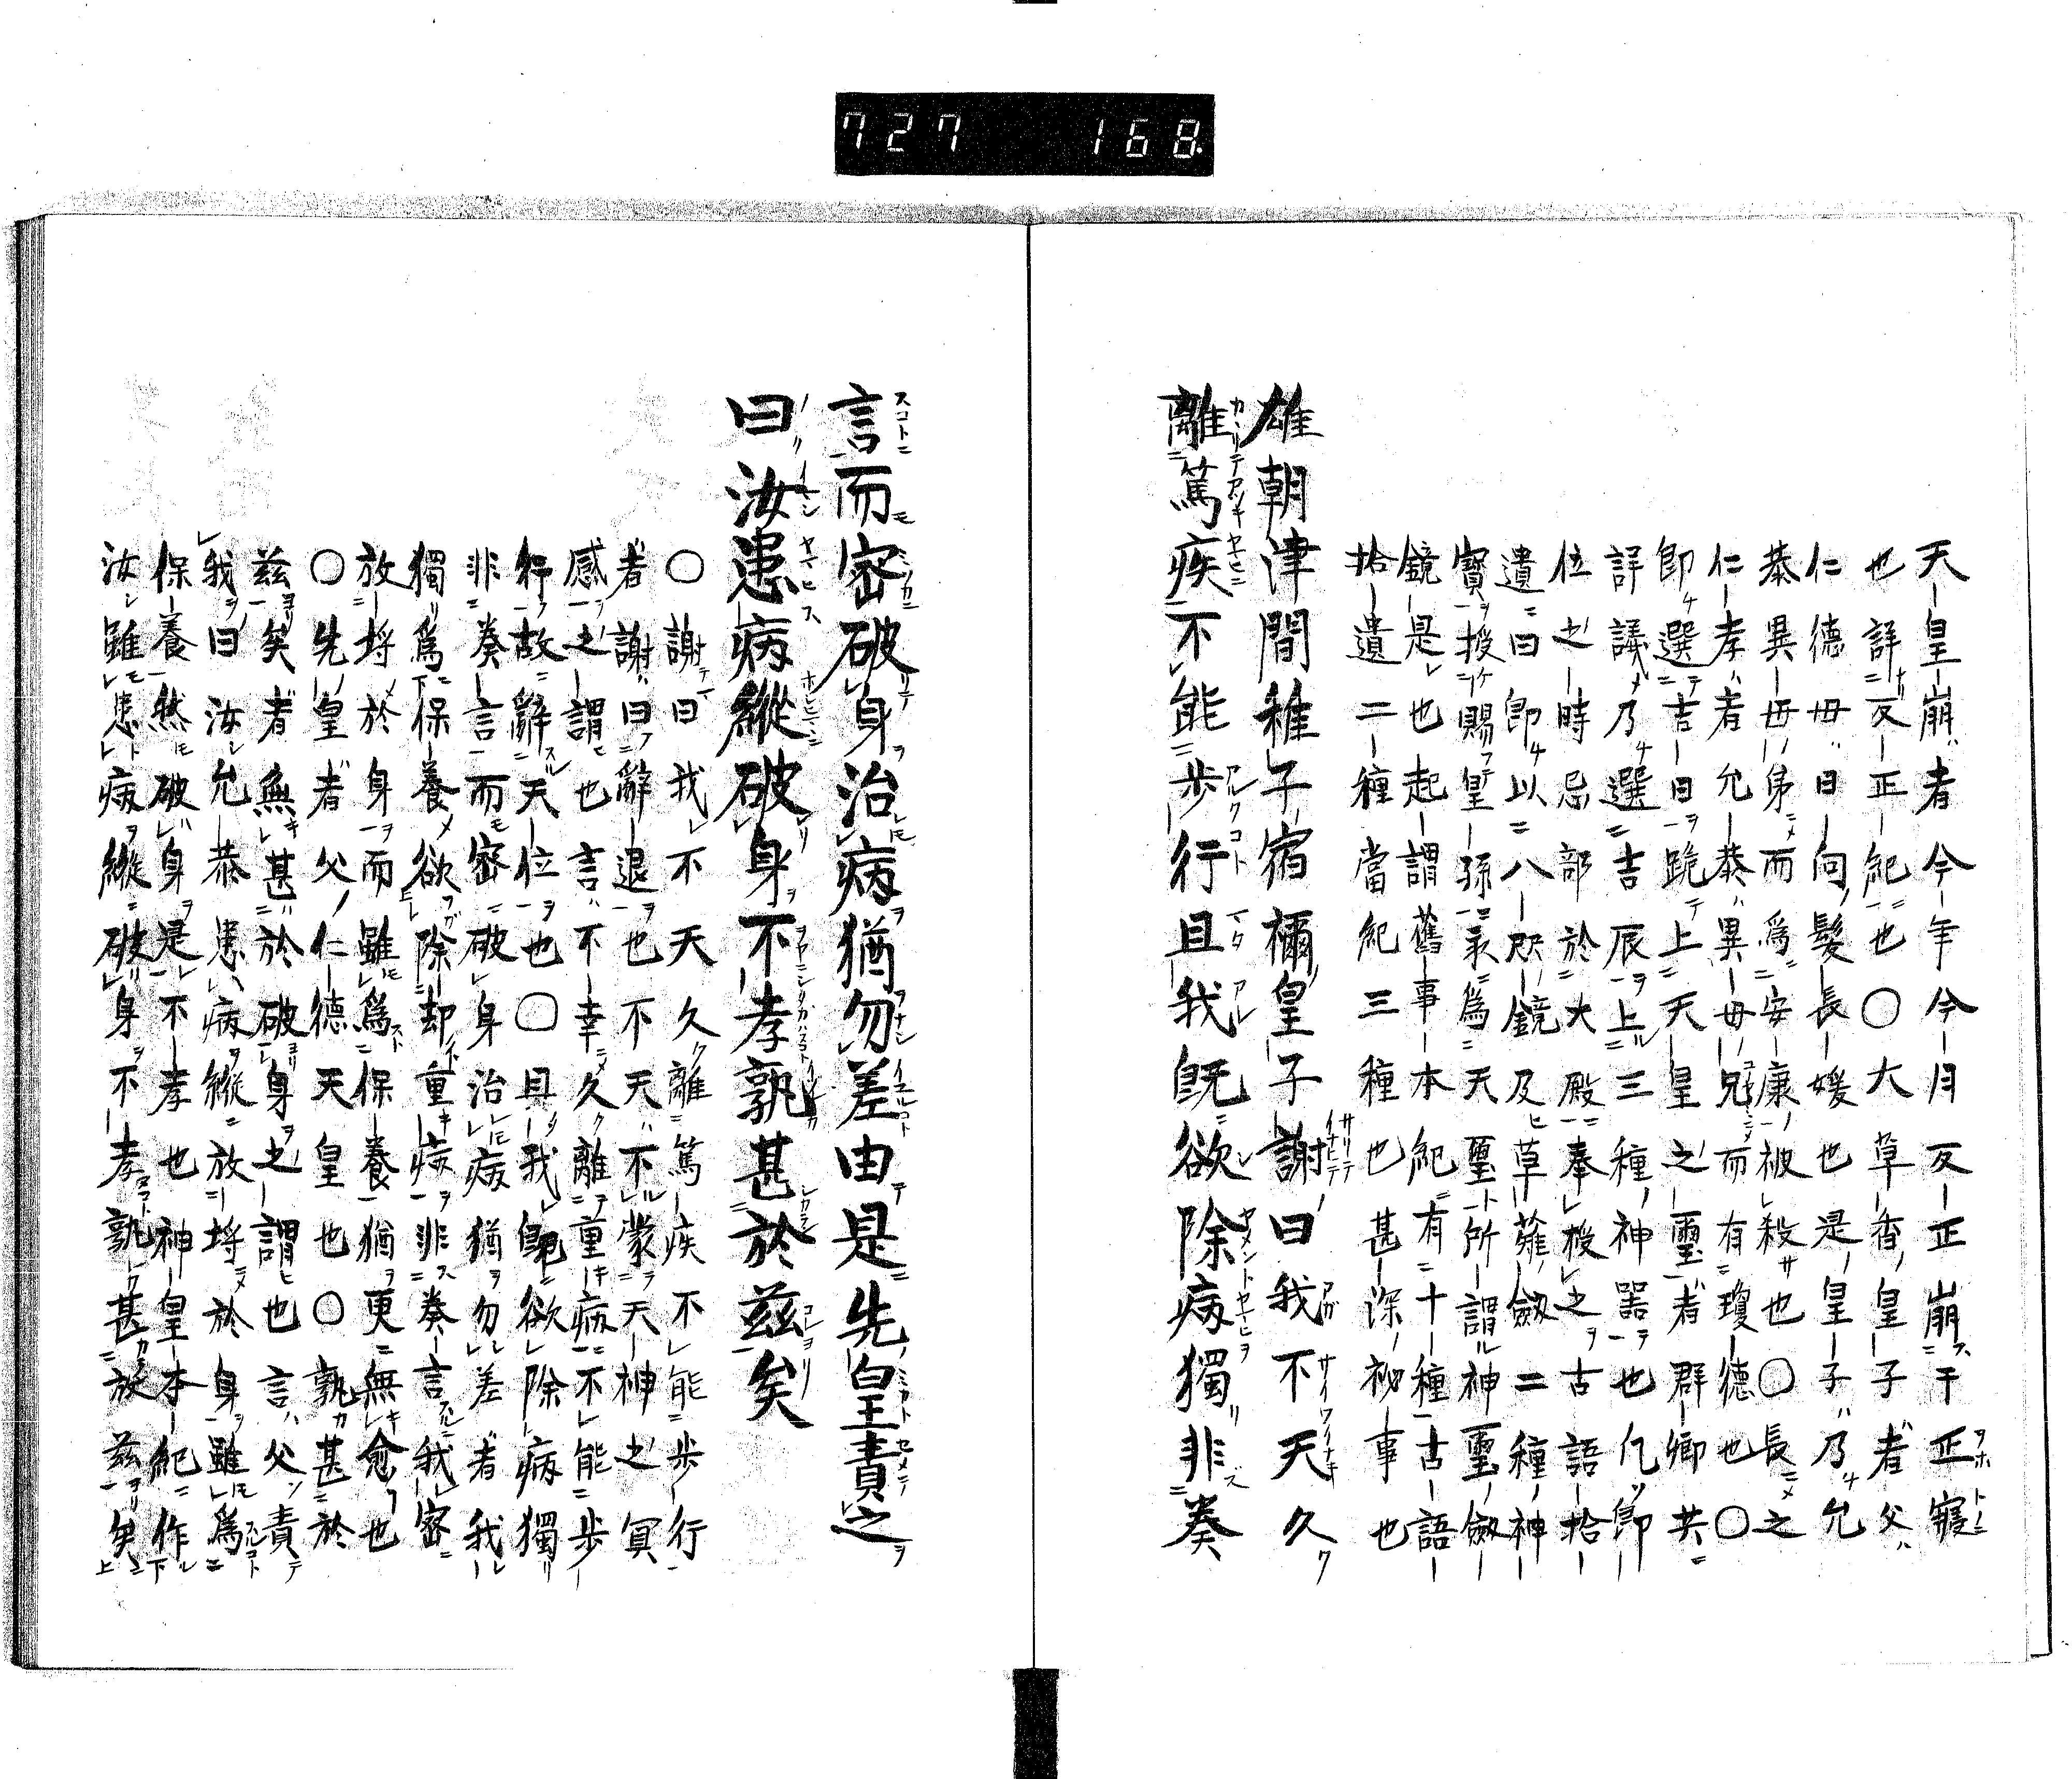 727 168
天皇崩者今年今月反正崩于正寢
也詳反正紀也〇大草香皇子者父
仁德母日向髮長媛也是皇子乃允
恭異母弟而爲安康被殺也〇長之
仁孝者允恭異母兄而有瓊德也〇
卽選吉日跪上天皇之璽者群卿共
詳議乃選吉辰上三種神器也凢卽
位之時忌部於大殿奉授之古語拾
遺曰卽以八咫鏡及草薙劔二種神
寶授賜皇孫永爲天璽所謂神璽劔
鏡是也起謂舊事本紀有十種古語
拾遺二種當紀三種也甚深祕事也
雄朝津間稚子宿禰皇子謝曰我不天久
離篤疾不能步行且我既欲除病獨非奏
言而密破身治病猶勿差由是先皇責之
曰汝患病縱破身不孝孰甚於茲矣
〇謝曰我不天久離篤疾不能步行
者謝曰辭退也不天不蒙天神之冥
感之謂也言不幸久離重病不能步
行故辭天位也〇且我既欲除病獨
非奏言而密破身治病猶勿差者我
獨爲保養欲除却重病非奏言我密
放埒於身而雖爲保養猶更無愈也
〇先皇者父仁德天皇也〇孰甚於
茲矣者無甚於破身之謂也言父責
我曰汝允恭患病縱放埒於身雖爲
保養然破身是不孝也神皇本紀作
汝雖患病縱破身不孝孰甚放茲矣